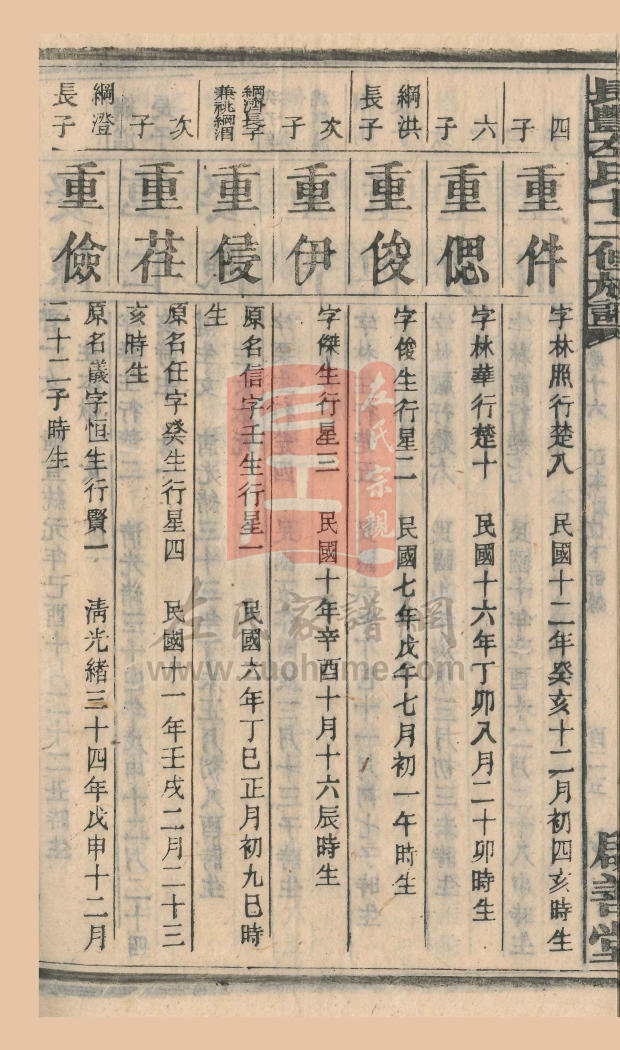 四子
重件
字林照行楚八 民國十二年癸亥十二月初四亥時生
六子
重偲
字林華行楚十 民國十六年丁卯八月二十卯時生
綱洪長子
重俊
字俊生行星二 民國七年戊午七月初一午時生
次子
重伊
字傑生行星三 民國十年辛酉十月十六辰時生
綱濟長子
兼祧綱涓
重侵
原名信字壬生行星一 民國六年丁巳正月初九巳時
生
次子
重荏
原名任字癸生行星四 民國十一年壬戌二月二十三
亥時生
綱澄長子
重儉
原名議字恒生行賢一 淸光緒三十四年戊申十二月
二十二子時生
左氏宗親
左氏家譜網
www.zuohome.com